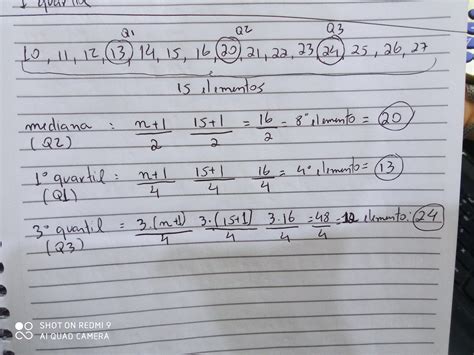 1 quartil
Q1 Q2 Q3
10, 11, 12, 13, 14, 15, 16, 20, 21, 22, 23, 24, 25, 26, 27
15 elementos
mediana : n+1/2 15+1/2 = 16/2 = 8° elemento = 20
(Q2)
1° quartil : n+1/4 15+1/4 16/4 = 4° elemento = 13
(Q1)
3° quartil = 3.(n+1)/4 3.(15+1)/4 3.16/4 = 48/4 = 12 elemento: 24
(Q3)
SHOT ON REDMI 9
AI QUAD CAMERA